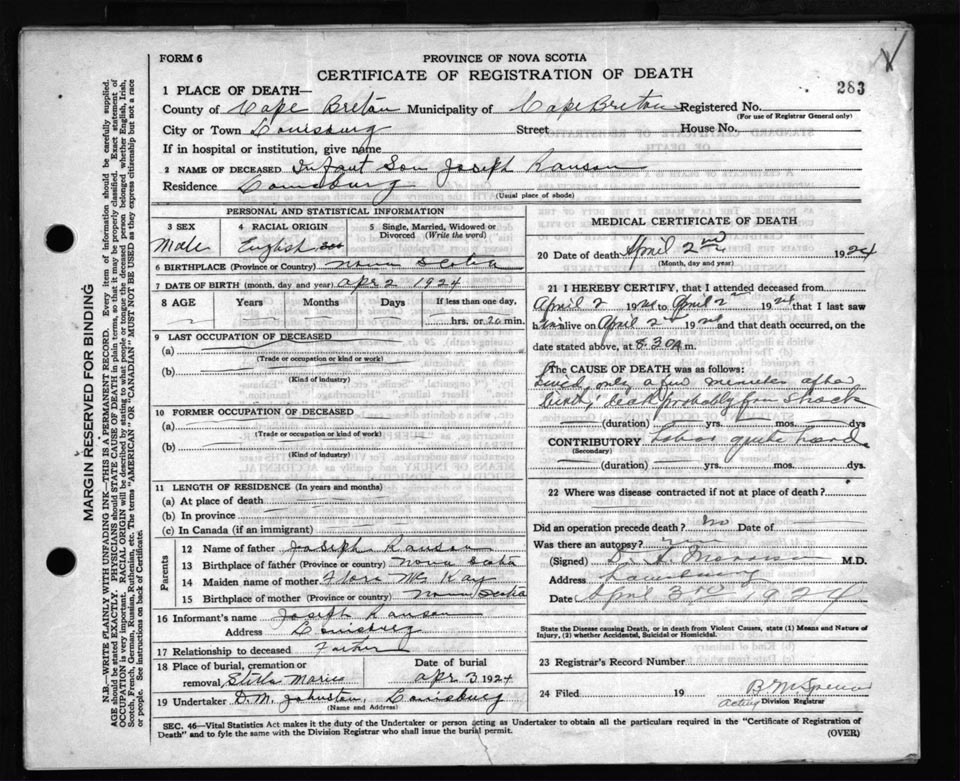 FORM 6
PROVINCE OF NOVA SCOTIA
CERTIFICATE OF REGISTRATION OF DEATH
283
1 PLACE OF DEATH—
County of Cape Breton Municipality of Cape Breton Registered No.
(For use of Registrar General only)
City or Town Louisburg Street House No.
If in hospital or institution, give name
2 NAME OF DECEASED Infant Son Joseph Ranson
Residence Louisburg
(Usual place of abode)
PERSONAL AND STATISTICAL INFORMATION
3 SEX 4 RACIAL ORIGIN 5 Single, Married, Widowed or Divorced (Write the word)
Male English
6 BIRTHPLACE (Province or Country) Nova Scotia
7 DATE OF BIRTH (month, day and year) Apr 2 1924
8 AGE Years Months Days If less than one day,
hrs. or 20 min.
9 LAST OCCUPATION OF DECEASED
(a)
(Trade or occupation or kind or work)
(b)
(Kind of industry)
10 FORMER OCCUPATION OF DECEASED
(a)
(Trade or occupation or kind of work)
(b)
(Kind of industry)
11 LENGTH OF RESIDENCE (In years and months)
(a) At place of death
(b) In province
(c) In Canada (if an immigrant)
Parents
12 Name of father Joseph Ranson
13 Birthplace of father (Province or country) Nova Scotia
14 Maiden name of mother Flora McKay
15 Birthplace of mother (Province or country) Nova Scotia
16 Informant's name Joseph Ranson
Address Louisburg
17 Relationship to deceased Father
18 Place of burial, cremation or removal Stella Maris
Date of burial Apr 3 1924
19 Undertaker D.M. Johnston, Louisburg
(Name and Address)
MEDICAL CERTIFICATE OF DEATH
20 Date of death April 2nd 1924
(Month, day and year)
21 I HEREBY CERTIFY, that I attended deceased from
April 2 1924 to April 2nd 1924 that I last saw
him alive on April 2nd 1924 and that death occurred, on
date stated above, at 8.30 A m.
The CAUSE OF DEATH was as follows:
Lived only a few minutes after
birth; death probably from shock
(duration) yrs. mos. dys
CONTRIBUTORY Labor quite hard
(Secondary)
(duration) yrs. mos. dys.
22 Where was disease contracted if not at place of death?
Did an operation precede death? no Date of
Was there an autopsy?
(Signed) M.D.
Address Louisburg
Date April 3rd 1924
State the Disease causing Death, or in death from Violent Causes, state (1) Means and Nature of
Injury, (2) whether Accidental, Suicidal or Homicidal.
23 Registrar's Record Number
24 Filed 19
Acting Division Registrar
SEC. 46—Vital Statistics Act makes it the duty of the Undertaker or person acting as Undertaker to obtain all the particulars required in the "Certificate of Registration of
Death" and to fyle the same with the Division Registrar who shall issue the burial permit.
(OVER)
MARGIN RESERVED FOR BINDING
N.B.—WRITE PLAINLY WITH UNFADING INK—THIS IS A PERMANENT RECORD. Every item of information should be carefully supplied.
AGE should be stated EXACTLY. PHYSICIANS should STATE CAUSE OF DEATH in plain terms, so that it may be properly classified. Exact statement of
OCCUPATION is very important. RACIAL ORIGIN will be described by stating to what people or tongue the deceased person belonged whether English, Irish,
Scotch, French, German, Russian, Ruthenian, etc. The terms "AMERICAN" OR "CANADIAN" MUST NOT BE USED as they express citizenship but not a race
or people. See instructions on back of Certificate.